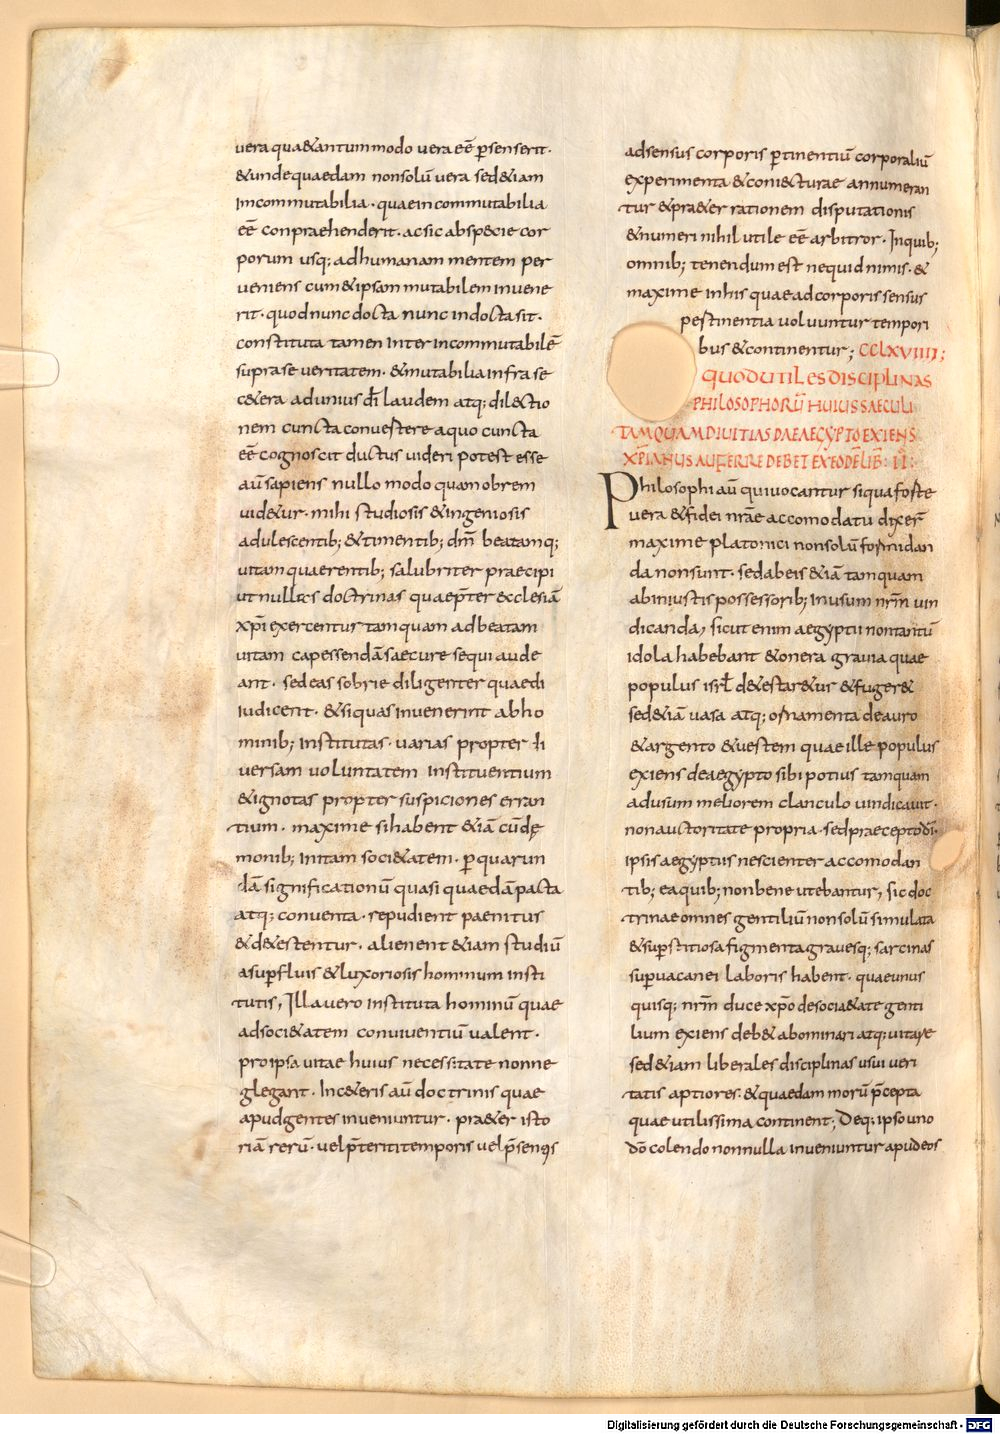 vera qua&antummodo vera eē p̄senserit·
&unde quaedam nonsolū vera sed&iam
incommutabilia· quae incommutabilia
eē conpraehenderit· ac sic ab sp&cie cor
porum usq; ad humanam mentem per
veniens cum&ipsam mutabilem invene
rit· quod nunc docta nunc indocta sit·
constituta tamen inter incommutabilē
supra se veritatem· &mutabilia infra se
c&era ad unius dī laudem atq; dil&ctio
nem cuncta convestere a quo cuncta
eē cognoscit ductus videri potest esse
aū sapiens nullo modo quam obrem
vid&ur· mihi studiosis &ingeniosis
adulescentib; &timentib; dm̄ beatamq;
vitam quaerentib; salubriter praecipi
ut nullas doctrinas quae p̄ter ecclesiā
xp̄i exercentur tamquam ad beatam
vitam capessendā saecure sequi aude
ant· sed eas sobrie diligenter quae di
iudicent· &si quas invenerint ab ho
minib; institutas· varias propter di
versam voluntatem instituentium
&ignotas propter suspiciones erran
tium· maxime si habent &iā cū dę
monib; initam soci&atem· p̄ quarun
dā significationū quasi quaedā pacta
atq; conventa· repudient paenitus
&d&estentur· alienent &iam studiū
a sup̄fluis &luxoriosis hominum insti
tutis, Illa vero instituta hominū quae
ad soci&atem conviventiū valent·
pro ipsa vitae huius necessitate non ne
glegant· In c&eris aū doctrinis quae
apud gentes inveniuntur· pra&er isto
riā rerū· vel p̄teriti temporis vel p̄sen
ad sensus corporis p̄tinentiū corporaliū
experimenta &coni&cturae annumeran
tur &pra&er rationem disputationis
&numeri nihil utile eē arbitror· In quib;
omnib; tenendum est ne quid nimis· &
maxime in his quae ad corporis sensus
pestinentia voluuntur tempori
bus &continentur; CCLXVIIII;
QUOD UTILES DISCIPLINAS
PHILOSOPHORŪ HUIUS SAECULI
TAMQUAM DIVITIAS DAE AEGYPTO EXIENS
XP̄IANUS AUFERRE DEBET EX EODĒ LIB̄: II:
Philosophi aū qui vocantur si qua foste
vera &fidei nrāe accomodatu dixer̄
maxime platonici non solū formidan
da non sunt· sed ab eis &iā tamquam
ab iniustis possessorib; in usum nrm̄ vin
dicanda, sicut enim aegyptii non tantū
idola habebant &onera gravia quae
populus isrl̄ d&estar&ur &fuger&
sed&iā vasa atq; ornamenta de auro
&argento &vestem quae ille populus
exiens de aegypto sibi potius tamquam
ad usum meliorem clanculo vindicavit·
non auctoritate propria· sed praecepto dī·
ipsis aegyptiis nescienter accomodan
tib; ea quib; non bene utebantur, sic doc
trinae omnes gentiliū non solū simulata
&sup̄stitiosa figmenta gravesq; sarcinas
sup̄vacanei laboris habent· quae unus
quisq; nrm̄ duce xp̄o de socia&ate genti
lium exiens deb& abominari atq; vitare
sed&iam liberales disciplinas usui veri
tatis aptiores· &quaedam morū p̄cepta
quae utilissima continent; Deq; ipso uno
dō colendo nonnulla inveniuntur apud eos